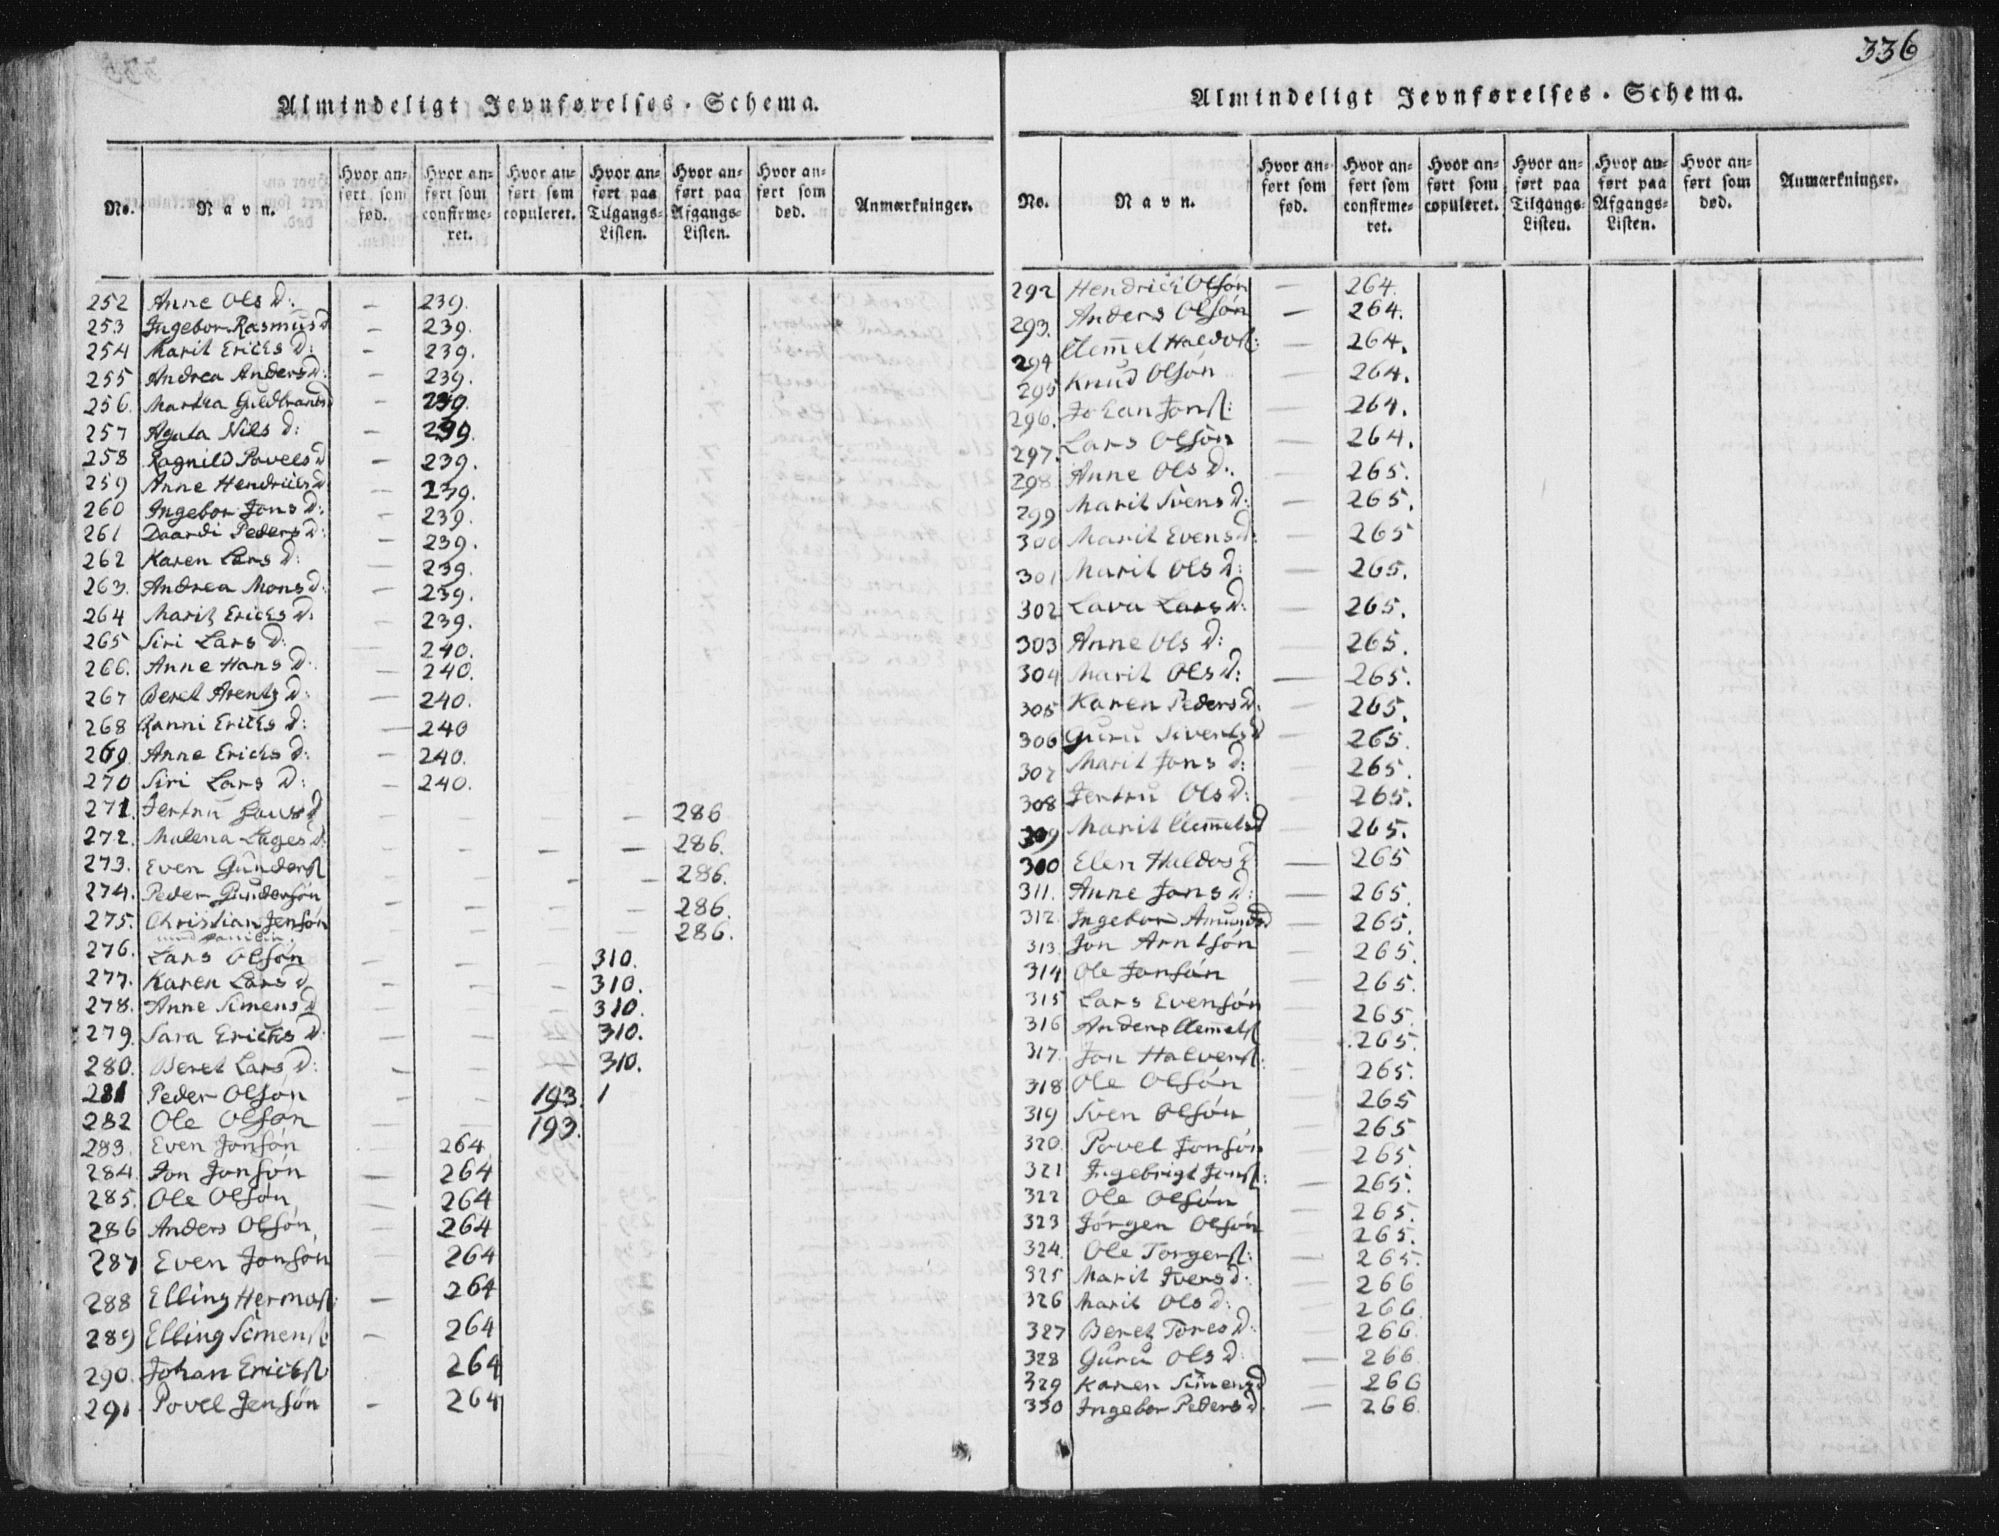 336
Almindeligt Jevnførelses-Schema.
No. Navn. Hvor anført som fød. Hvor anført som confirmeret. Hvor anført som copuleret. Hvor anført paa Tilgangs-Listen. Hvor anført paa Afgangs-Listen. Hvor anført som død. Anmærkninger.
252 Anne Ols D: — 239.
253 Ingebor Rasmus D — 239.
254 Marit Ericks D: — 239.
255 Andrea Anders D: — 239.
256. Martha Guldbrands D — 239.
257 Agata Nils D: — 239.
258 Ragnild Povels D — 239.
259 Anne Hendricks D — 239.
260 Ingebor Jons D: — 239.
261 Daardi Peders D: — 239.
262 Karen Lars D: — 239.
263. Andrea Mons D: — 239.
264 Marit Ericks D: — 239.
265 Siri Lars D: — 240.
266. Anne Hans D: — 240.
267 Beret Arents D: — 240.
268 Ranni Ericks D: — 240
269 Anne Ericks D: — 240.
270 Siri Lars D: — 240.
271. Jertru D — — — — 286
272. Malena D: — — — — 286.
273. Even Gunders — — — — 286.
274. Peder Gundersøn — — — — 286.
275. Christian Jensøn — — — — 286.
med familien.
276. Lars Olsøn — — — 310.
277. Karen Lars D — — — 310.
278. Anne Simens D — — — 310.
279. Sara Ericks D — — — 310.
280. Beret Lars D: — — — 310.
281 Peder Olsøn — — 193. 1
282 Ole Olsøn — — 193.
283. Even Jonsøn — 264
284. Jon Jonsøn — 264
285. Ole Olsøn — 264
286 Anders Olsøn — 264
287 Even Jonsøn — 264
288 Elling Hermos: — 264
289 Elling Simens — 264
290. Johan Ericks — 264
291 Povel Jensøn — 264
Almindeligt Jevnførelses-Schema.
No. Navn. Hvor anført som fød. Hvor anført som confirmeret. Hvor anført som copuleret. Hvor anført paa Tilgangs-Listen. Hvor anført paa Afgangs-Listen. Hvor anført som død. Anmærkninger.
292 Hendrick Olsøn — 264.
293. Anders Olsøn — 264.
294 Clem̅et Haldos: — 264.
295 Knud Olsøn — 264.
296. Johan Jons: — 264.
297. Lars Olsøn — 264.
298 Anne Ols D: — 265.
299 Marit Svens D: — 265.
300 Marit Evens D: — 265
301 Marit Ols D: — 265.
302 Lava Lars D: — 265.
303 Anne Ols D: — 265.
304 Marit Ols D: — 265.
305 Karen Peders D. — 265.
306 Guru Siverts D — 265.
307 Marit Jons D: — 265.
308 Jertru Ols D: — 265.
309 Marit Clem̅ets D — 265.
310 Elen Haldos D — 265
311. Anne Jons D: — 265.
312. Ingebor Amunds D — 265.
313. Jon Arntsøn — 265.
314 Ole Jonsøn — 265.
315 Lars Evensøn — 265.
316 Anders Clem̅ets — 265.
317. Jon Halvers: — 265.
318 Ole Olsøn — 265
319 Sven Olsøn — 265
320. Povel Jonsøn — 265.
321 Ingebrigt Jons: — 265.
322 Ole Olsøn — 265.
323 Jørgen Olsøn — 265.
324. Ole Torgers: — 265.
325 Marit Ivers D: — 266
326 Marit Ols D: — 266
327 Beret Tores D: — 266.
328 Guru Ols D: — 266
329 Karen Simens D — 266
330 Ingebor Peders D. — 266